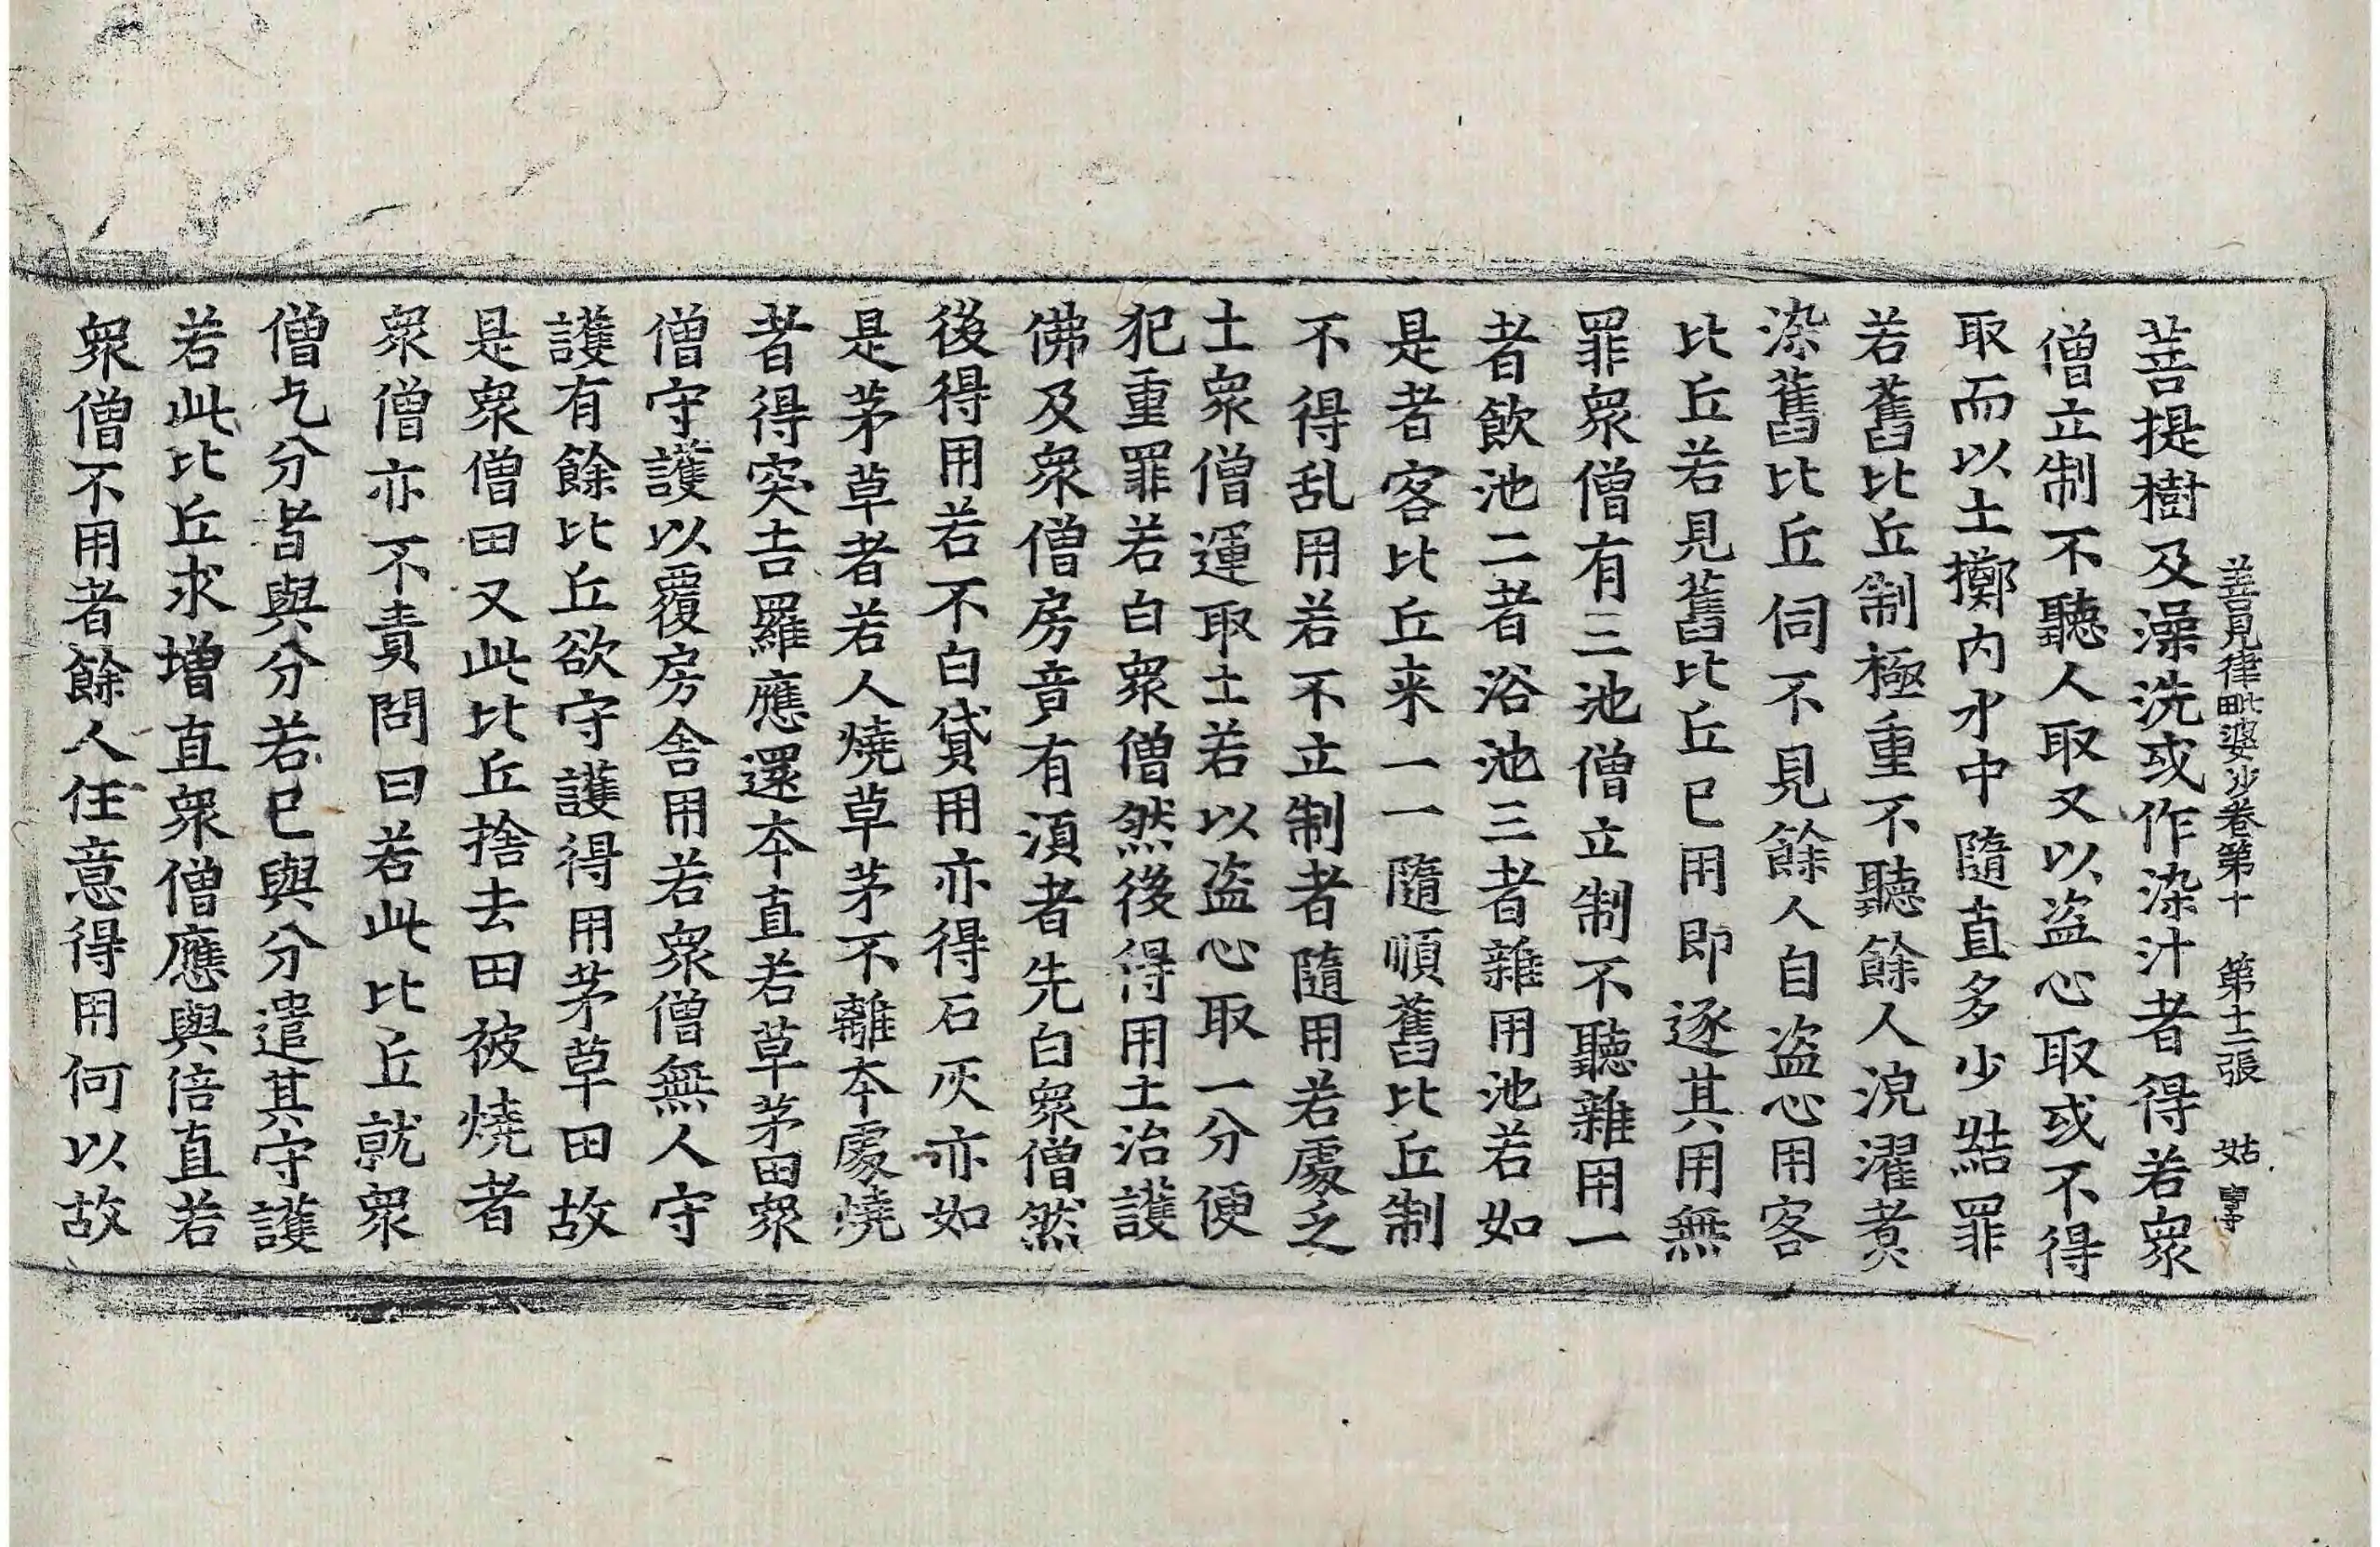 善見律毗婆沙卷第十 第十二張 姑
菩提樹及澡洗或作染汁者得若衆
僧立制不聽人取又以盗心取或不得
取而以土擲内水中隨直多少結罪
若舊比丘制極重不聽餘人浣濯煮
染舊比丘伺不見餘人自盗心用客
比丘若見舊比丘已用即逐其用無
罪衆僧有三池僧立制不聽雜用一
者飲池二者浴池三者雜用池若如
是者客比丘来一一隨順舊比丘制
不得乱用若不立制者隨用若處乏
土衆僧運取土若以盗心取一分便
犯重罪若白衆僧然後得用土治護
佛及衆僧房音有湏者先白衆僧然
後得用若不白貸用亦得石灰亦如
是茅草者若人燒草茅不離本處燒
者得突吉羅應還本直若草茅田衆
僧守護以覆房舎用若衆僧無人守
護有餘比丘欲守護得用茅草田故
是衆僧田又此比丘捨去田被燒者
衆僧亦不責問曰若此比丘就衆
僧乞分皆與分若已與分遣其守護
若此比丘求增直衆僧應與倍直若
衆僧不用者餘人任意得用何以故